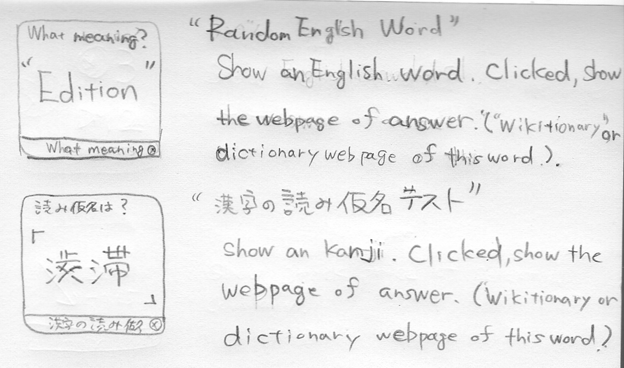 What meaning?
" Edition "
What meaning ⓧ
"Random English Word"
Show an English word. Clicked, show
the webpage of answer. ("Wikitionary" or
dictionary web page of this word.).
読み仮名は?
「渋滞」
漢字の読み仮名 ⓧ
"漢字の読み仮名テスト"
Show an Kanji. Clicked, show the
webpage of answer. (Wikitionary or
dictionary webpage of this word?